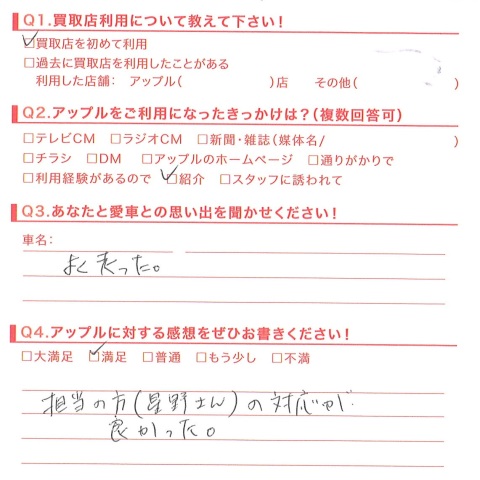 Q1.買取店利用について教えて下さい!
☑買取店を初めて利用
□過去に買取店を利用したことがある
利用した店舗: アップル( )店 その他( )
Q2.アップルをご利用になったきっかけは?(複数回答可)
□テレビCM □ラジオCM □新聞・雑誌(媒体名/ )
□チラシ □DM □アップルのホームページ □通りがかりで
□利用経験があるので ☑紹介 □スタッフに誘われて
Q3.あなたと愛車との思い出を聞かせください!
車名:
よく走った。
Q4.アップルに対する感想をぜひお書きください!
□大満足 ☑満足 □普通 □もう少し □不満
担当の方(星野さん)の対応が
良かった。